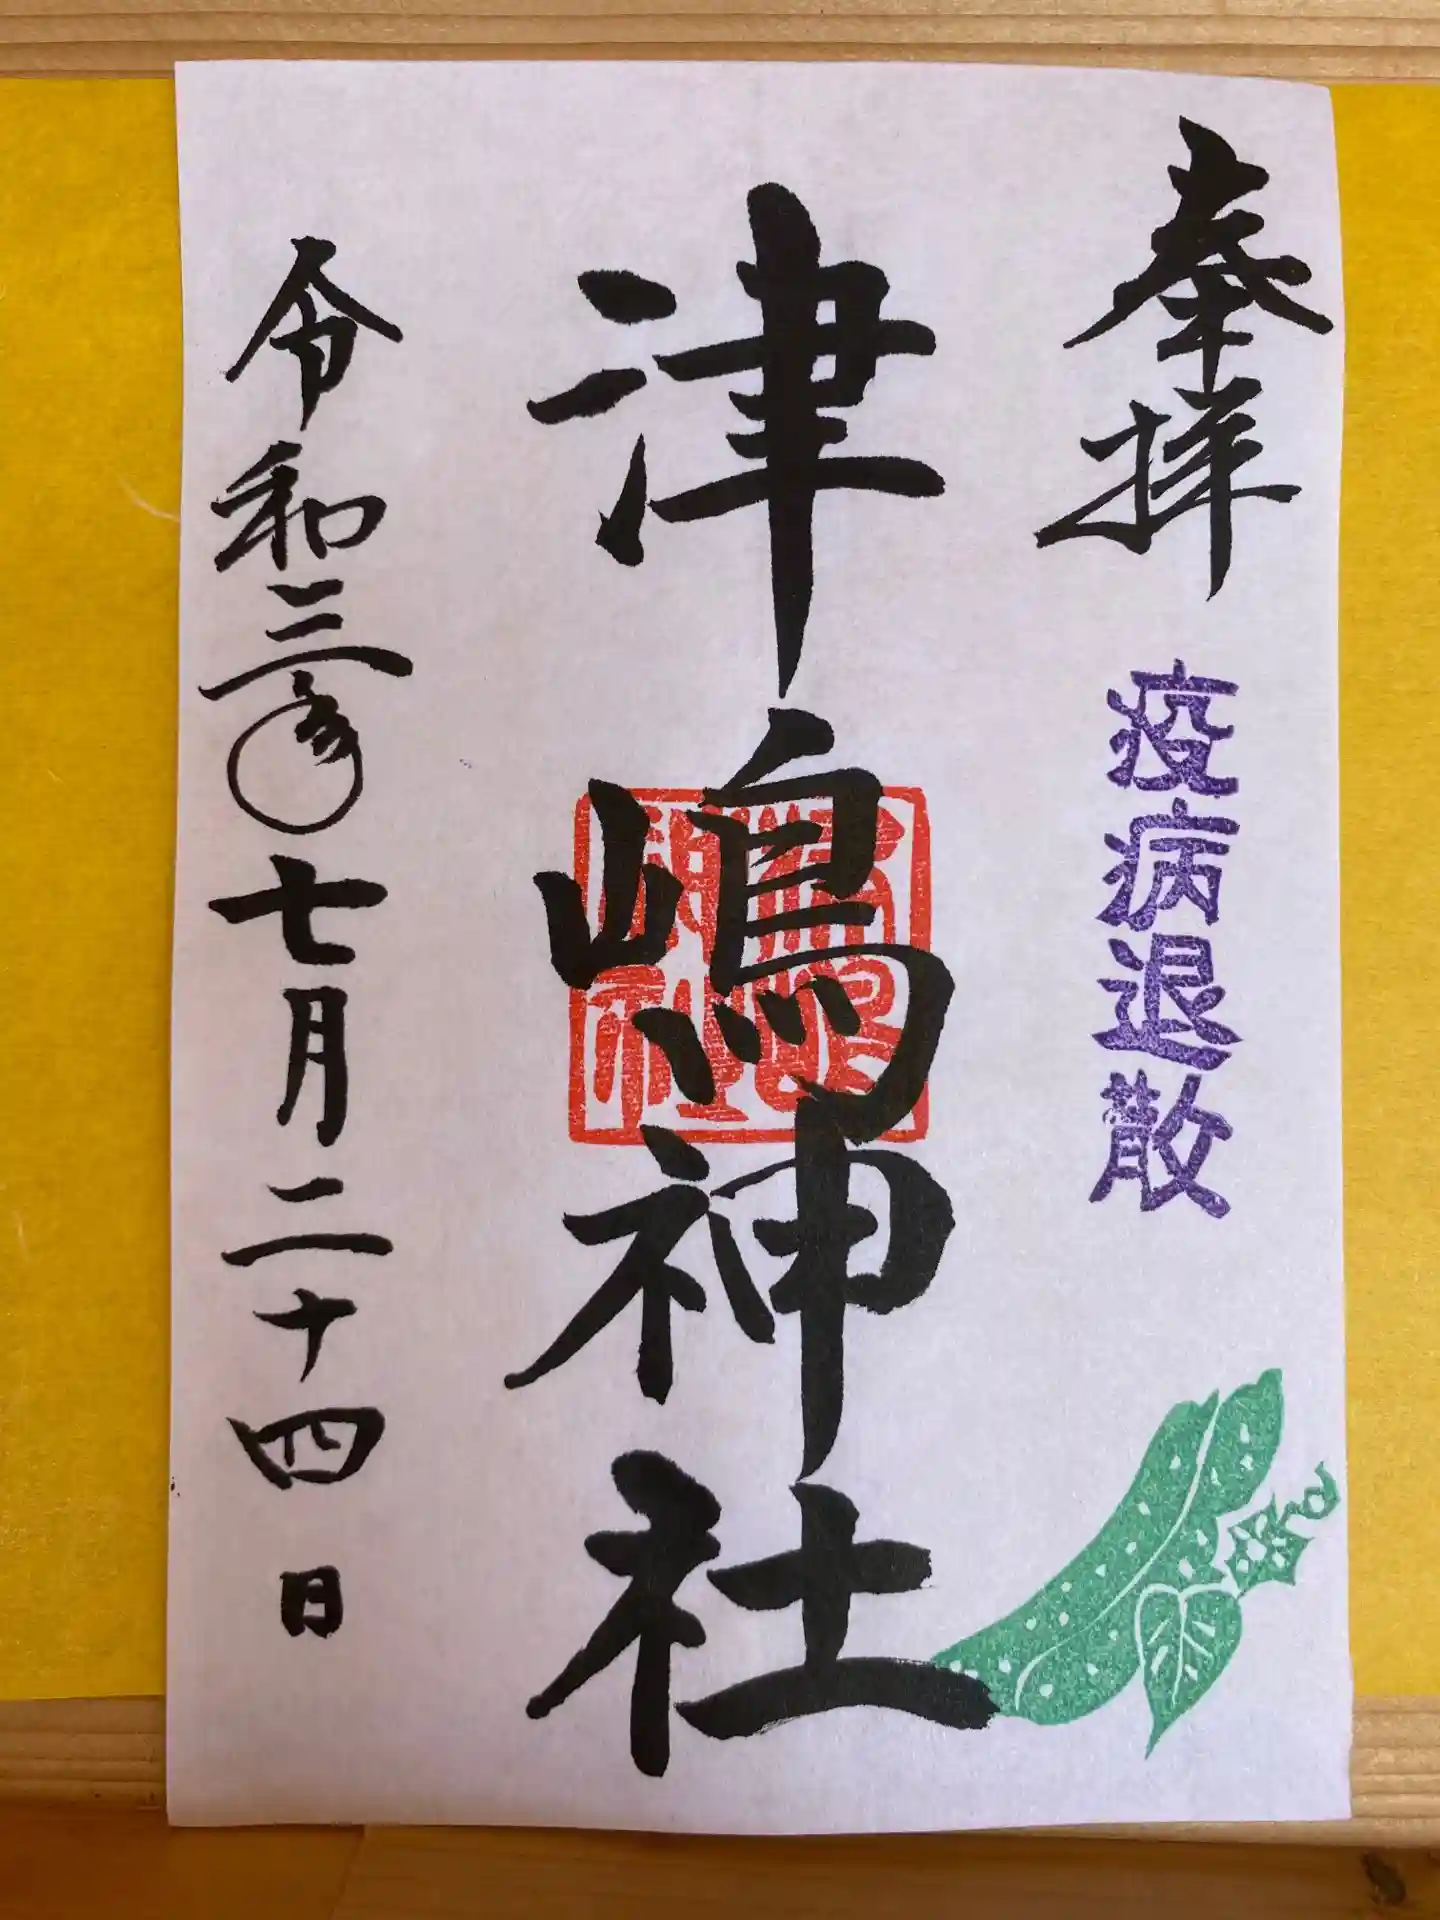 奉拝
疫病退散
津嶋神社
津嶋神社
令和三年七月二十四日